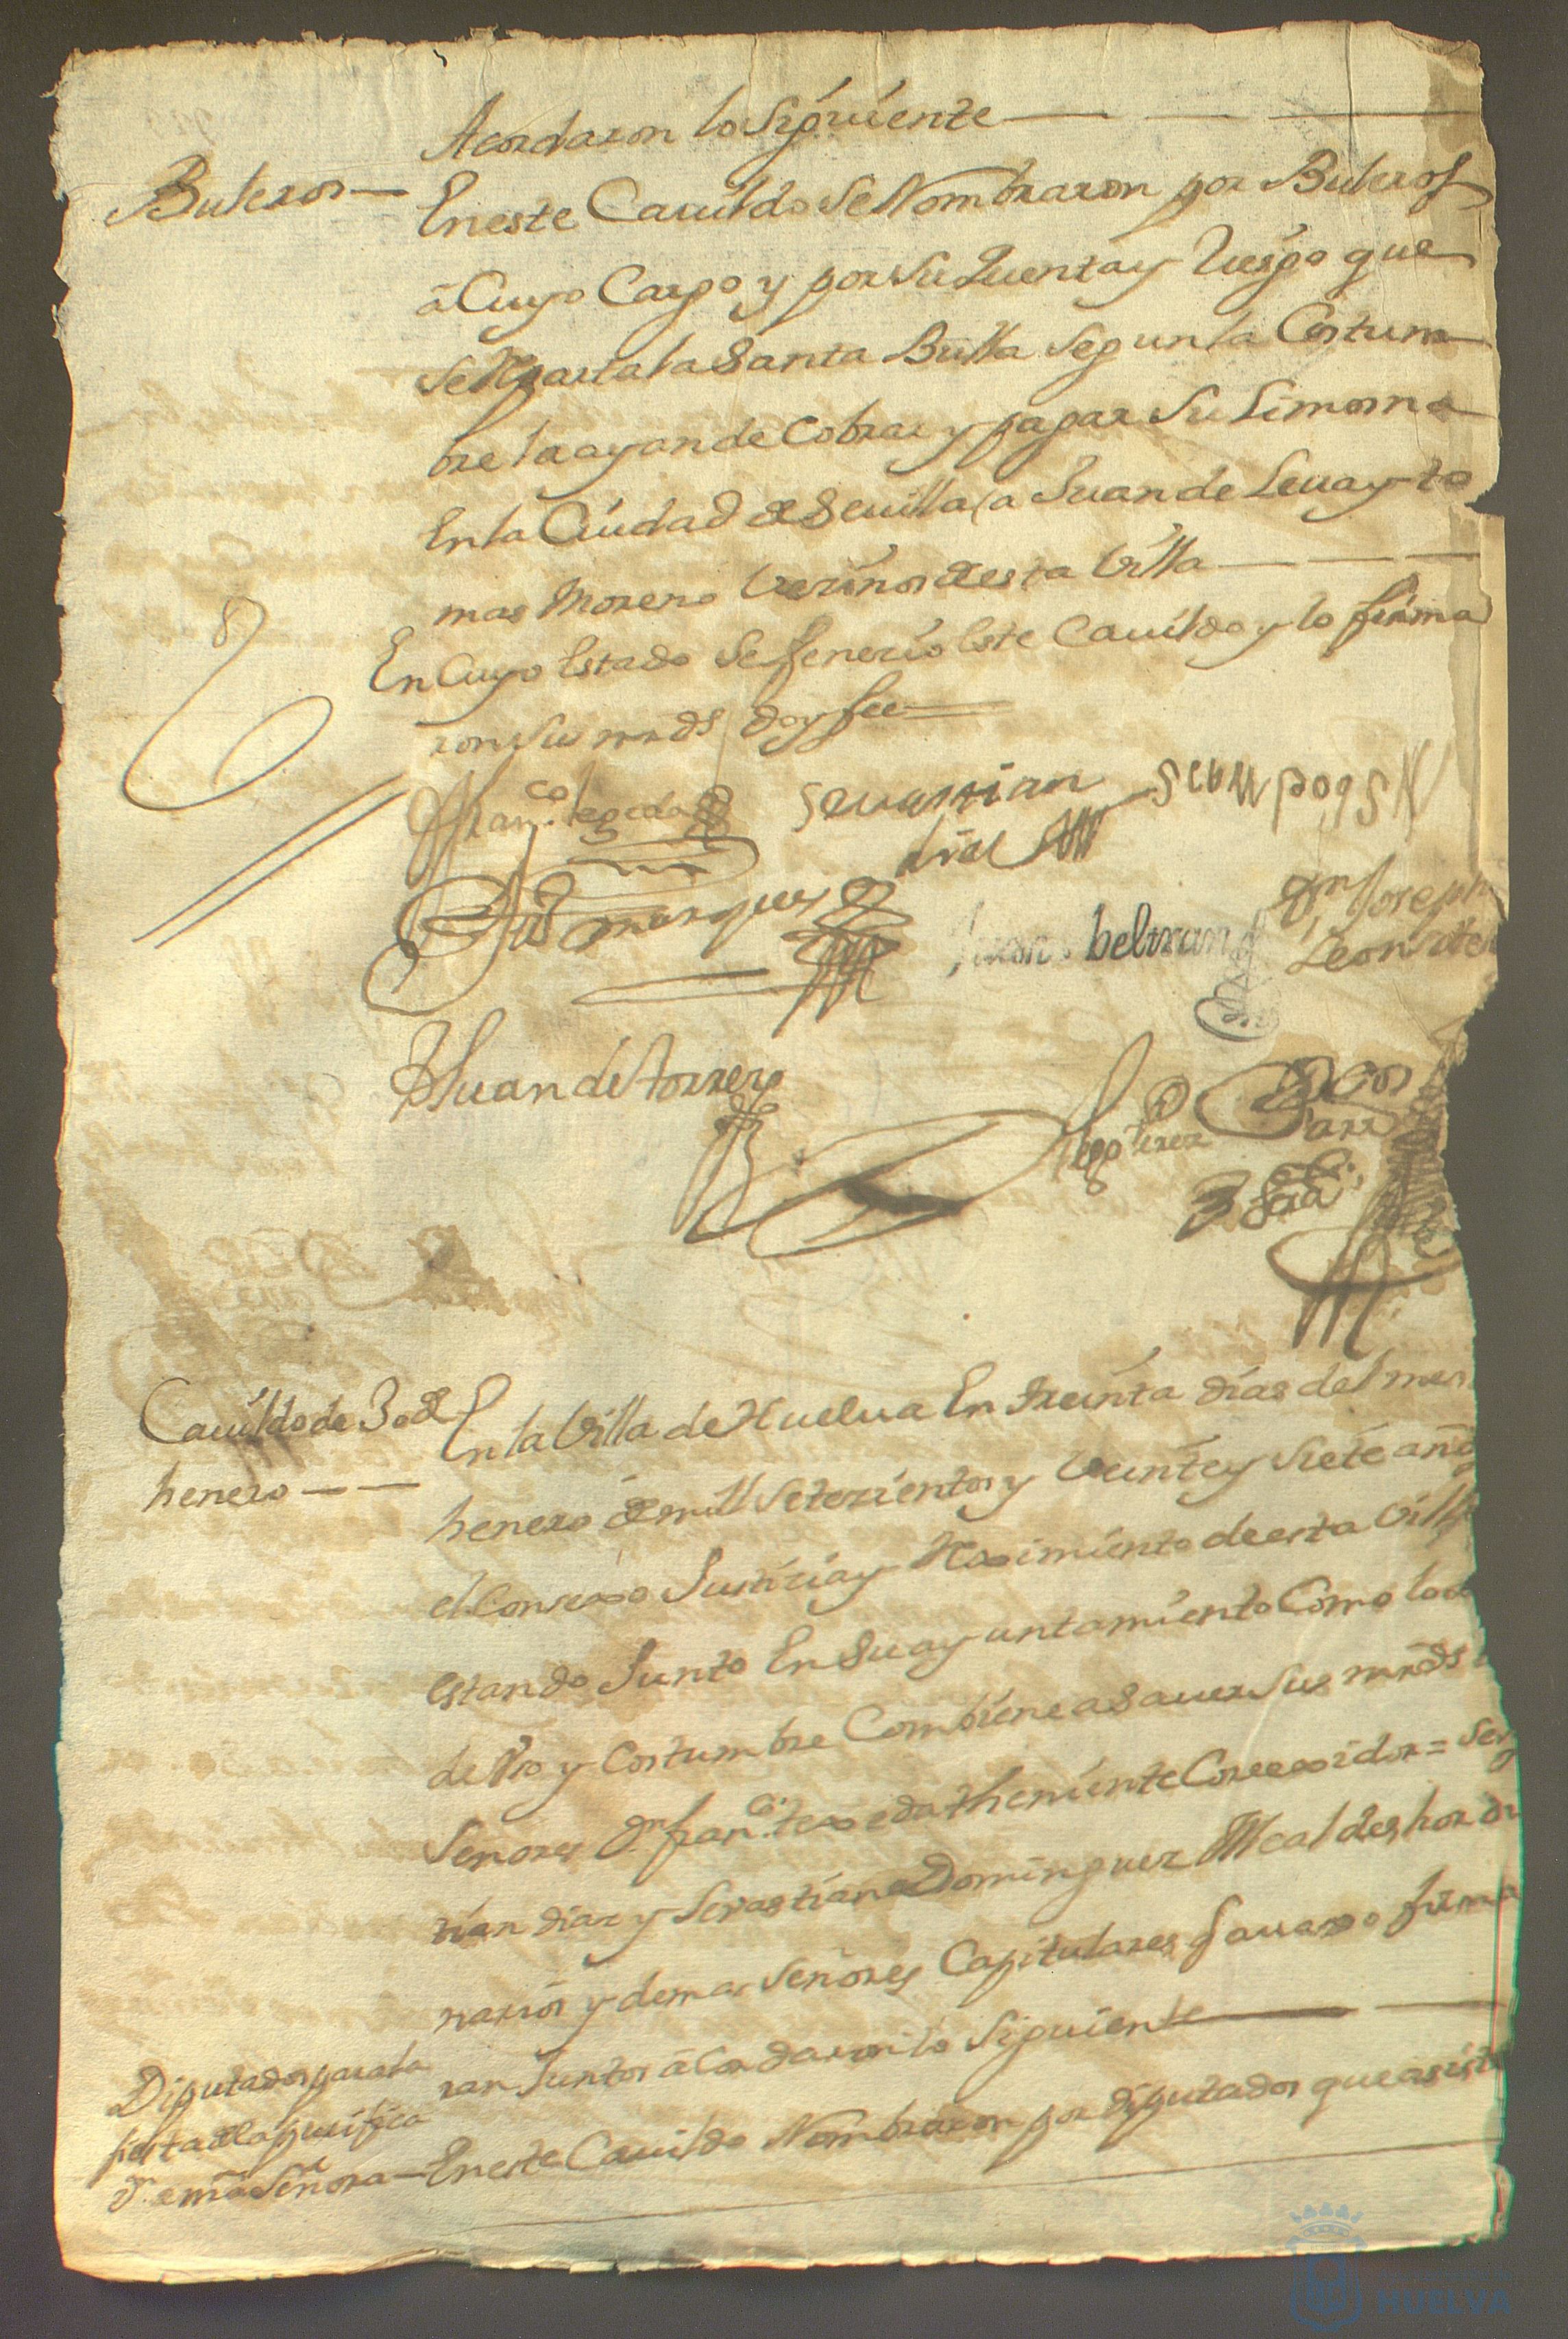 Acordaron lo siguiente
Buleros
En este Cauildo Se Nombraron por Buleros
â Cuyo Cargo y por Su Quenta y Riesgo que
Se Reparta la Santa Bulla Segun la Costum
bre la ayan de Cobrar y pagar Su Limosna
En la Ciudad de Seuilla a Juan de Leua y to
mas Moreno Vezinos desta Villa
En Cuyo Estado Se fenezio Este Cauildo y lo firma
ron Sus mrds doy fee
fran.co tegeda
Seuastian
dias
marques
Juan beltran
Dn Joseph
Leon
Juan de torres
Diego Perez
Cauildo de 30 de
henero
En la Villa de Huelua En treinta dias del mes
henero de mill Setezientos y Veinte y Siete año
el Conzexo Justizia y Reximiento de esta Villa
estando Junto En Su ayuntamiento Como lo
de Vso y Costumbre Combiene a Sauer Sus mrds
Señores Dn fran.co texeda theniente Correxidor = Seu
tian diaz y Sevastian Dominguez Alcaldes hordi
narios y demas Señores Capitulares q auaxo firma
ran Juntos â Cordaron lo Siguiente
Diputados para la
fiesta de la purifica
on de nra Señora
En este Cauildo Nombraron por diputados que asist
HUELVA